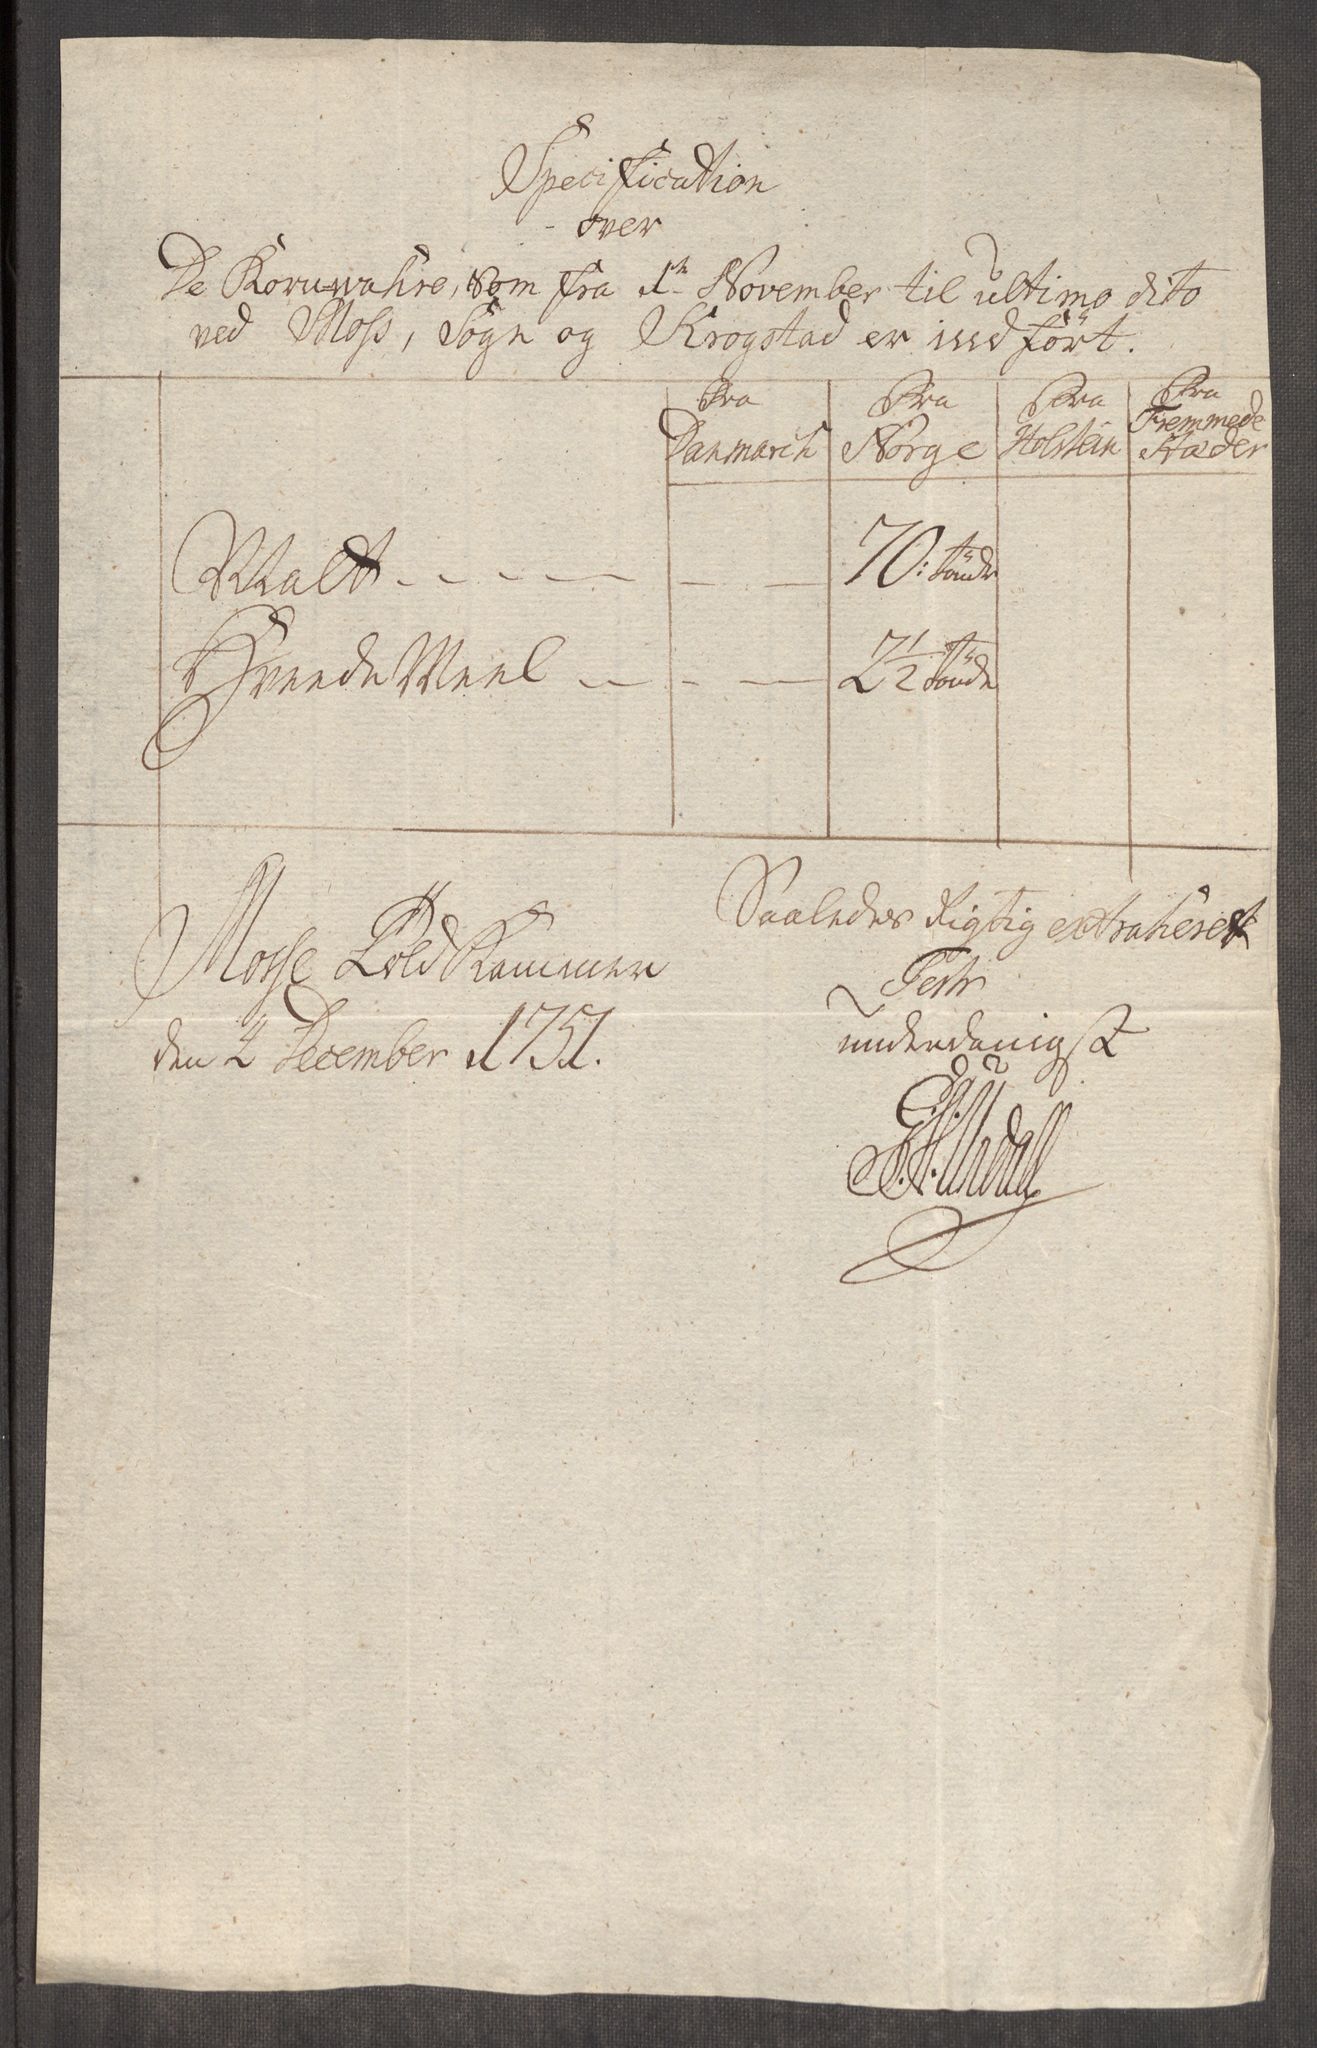 Specification
over
De Kornwahre, som fra 1te November til ultimo dito
ved Moss, Sogn og Krogstad er indført.
Fra Danmarck | Fra Norge | Fra Holstein | Fra Fremmede Stæder
Malt - - - - - - - 70: tönde
Hvede Meel - - - - - 2 1/2 tönde
Mosse Told Kammer
den 4 December 1751.
Saaledes Rigtig extraheret
Test
underdanigst